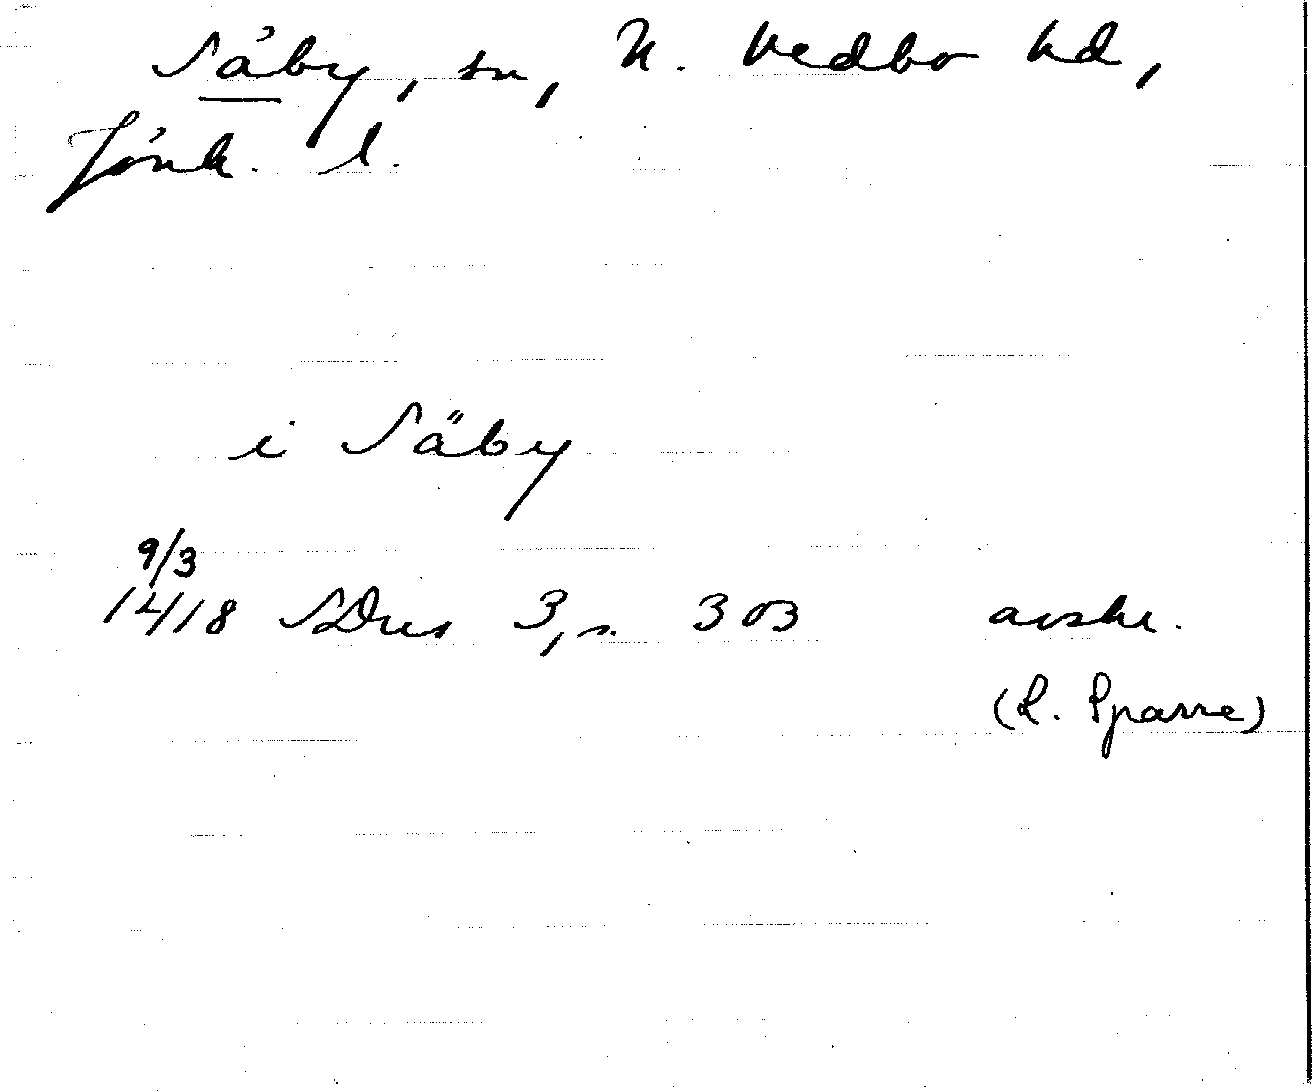 Säby, sn, N. Vedbo hd,
Jönk. l.
i Säby
9/3
1418 SDns 3, s. 303 avskr.
(L. Sparre)